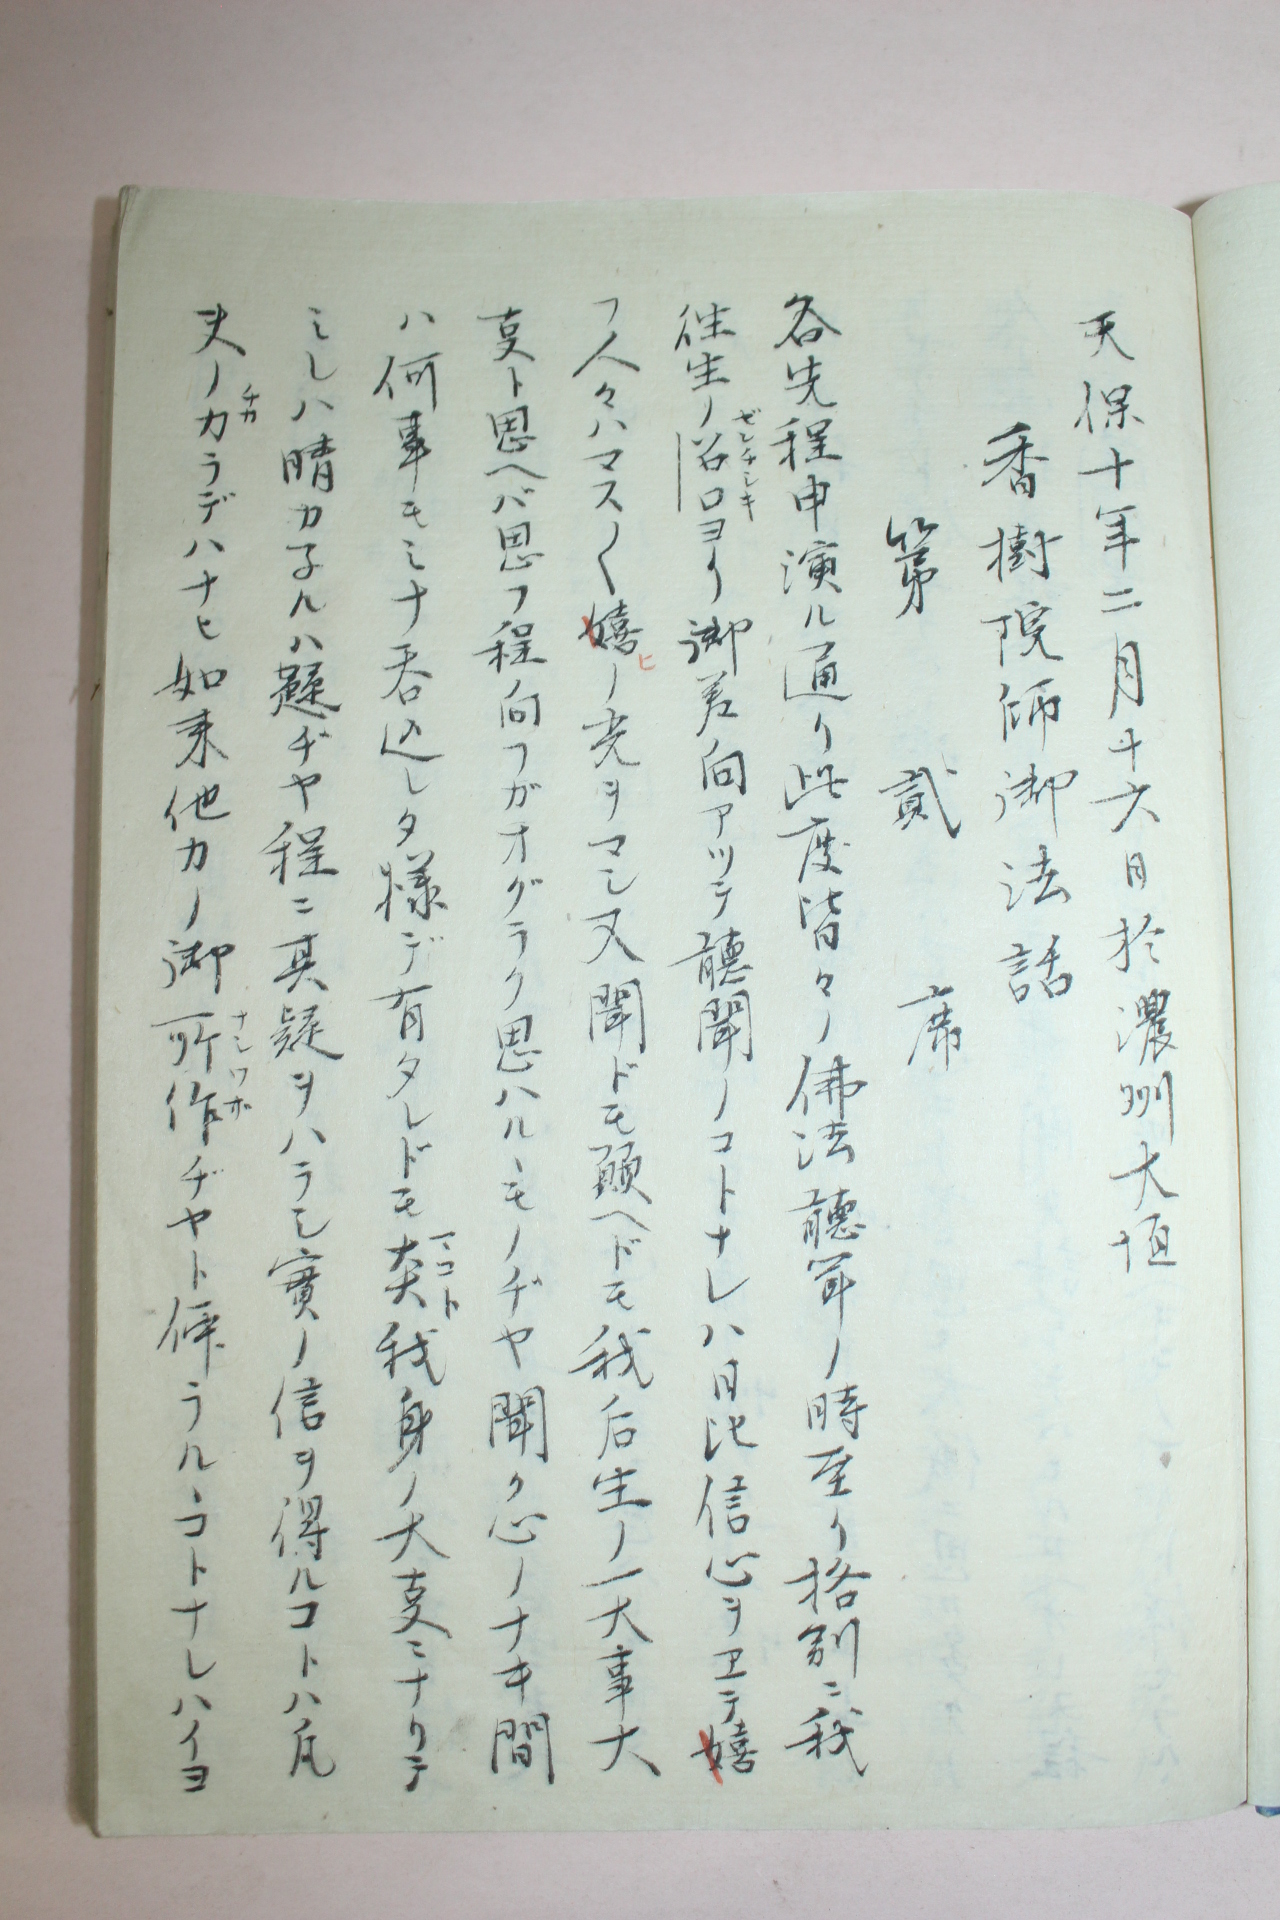 天保十年二月十六日於濃州大垣
香樹院師御法話
第貳席
各先程申演ル通リ此度皆々ノ佛法聽聞ノ時至リ格別ニ我
往生ノ ヨリ御差向アツテ聽聞ノコトナレハ日比信心ヲヱテ嬉
フ人々ハマス〱嬉ノ光ヲマシ又聞ドモ願ヘドモ我后生ノ一大事大
叓ト思ヘバ思フ程向フガオグラク思ハルヽモノヂヤ聞ク心ノナキ間
ハ何事モミナ呑込レタ様デ有タレドモ 我身ノ大叓ミナリテ
ミレハ晴カ子ルハ ヂヤ程ニ其疑ヲハラシ實ノ信ヲ得ルコトハ凡
夫ノ力ラデハナヒ如来他力ノ御所作ヂヤト ラルヽコトナレハイヨ